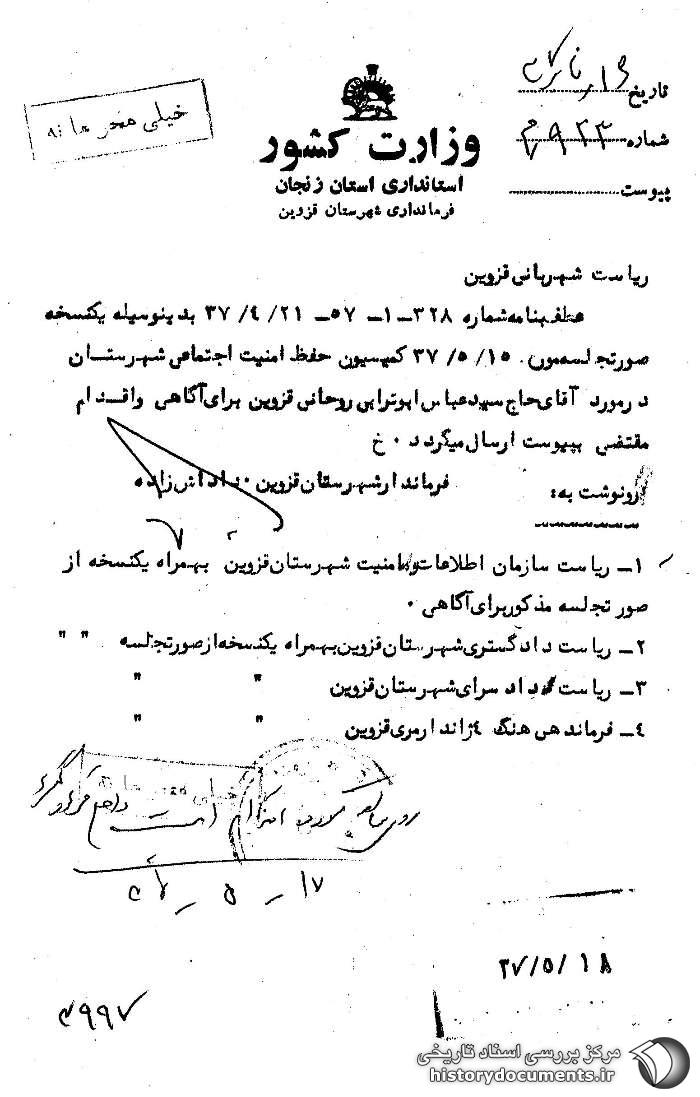 تاریخ
شماره
پیوست
خیلی محرمانه
وزارت کشور
استانداری استان زنجان
فرمانداری شهرستان قزوین
ریاست شهربانی قزوین
عطف بنامه شماره ۳۲۸-۱-۵۷- ۳۷/۴/۲۱ بدینوسیله یکنسخه
صورتجلسه مورخ ۳۷/۵/۱۵ کمیسیون حفظ امنیت اجتماعی شهرستان
در مورد آقای حاج سید عباس ابوترابی روحانی قزوین برای آگاهی و اقدام
مقتضی بپیوست ارسال میگردد ۰ خ
فرماندار شهرستان قزوین ۰ پاداش زاده
رونوشت به:
۱- ریاست سازمان اطلاعات و امنیت شهرستان قزوین بهمراه یکنسخه از
صورتجلسه مذکور برای آگاهی ۰
۲- ریاست دادگستری شهرستان قزوین بهمراه یکنسخه از صورتجلسه " "
۳- ریاست دادسرای شهرستان قزوین " "
۴- فرماندهی هنگ ژاندارمری قزوین " "
خیلی محرمانه
۱۷-۵-۳۷
۳۷/۵/۱۸
۳۹۹۷
مرکز بررسی اسناد تاریخی
historydocuments.ir